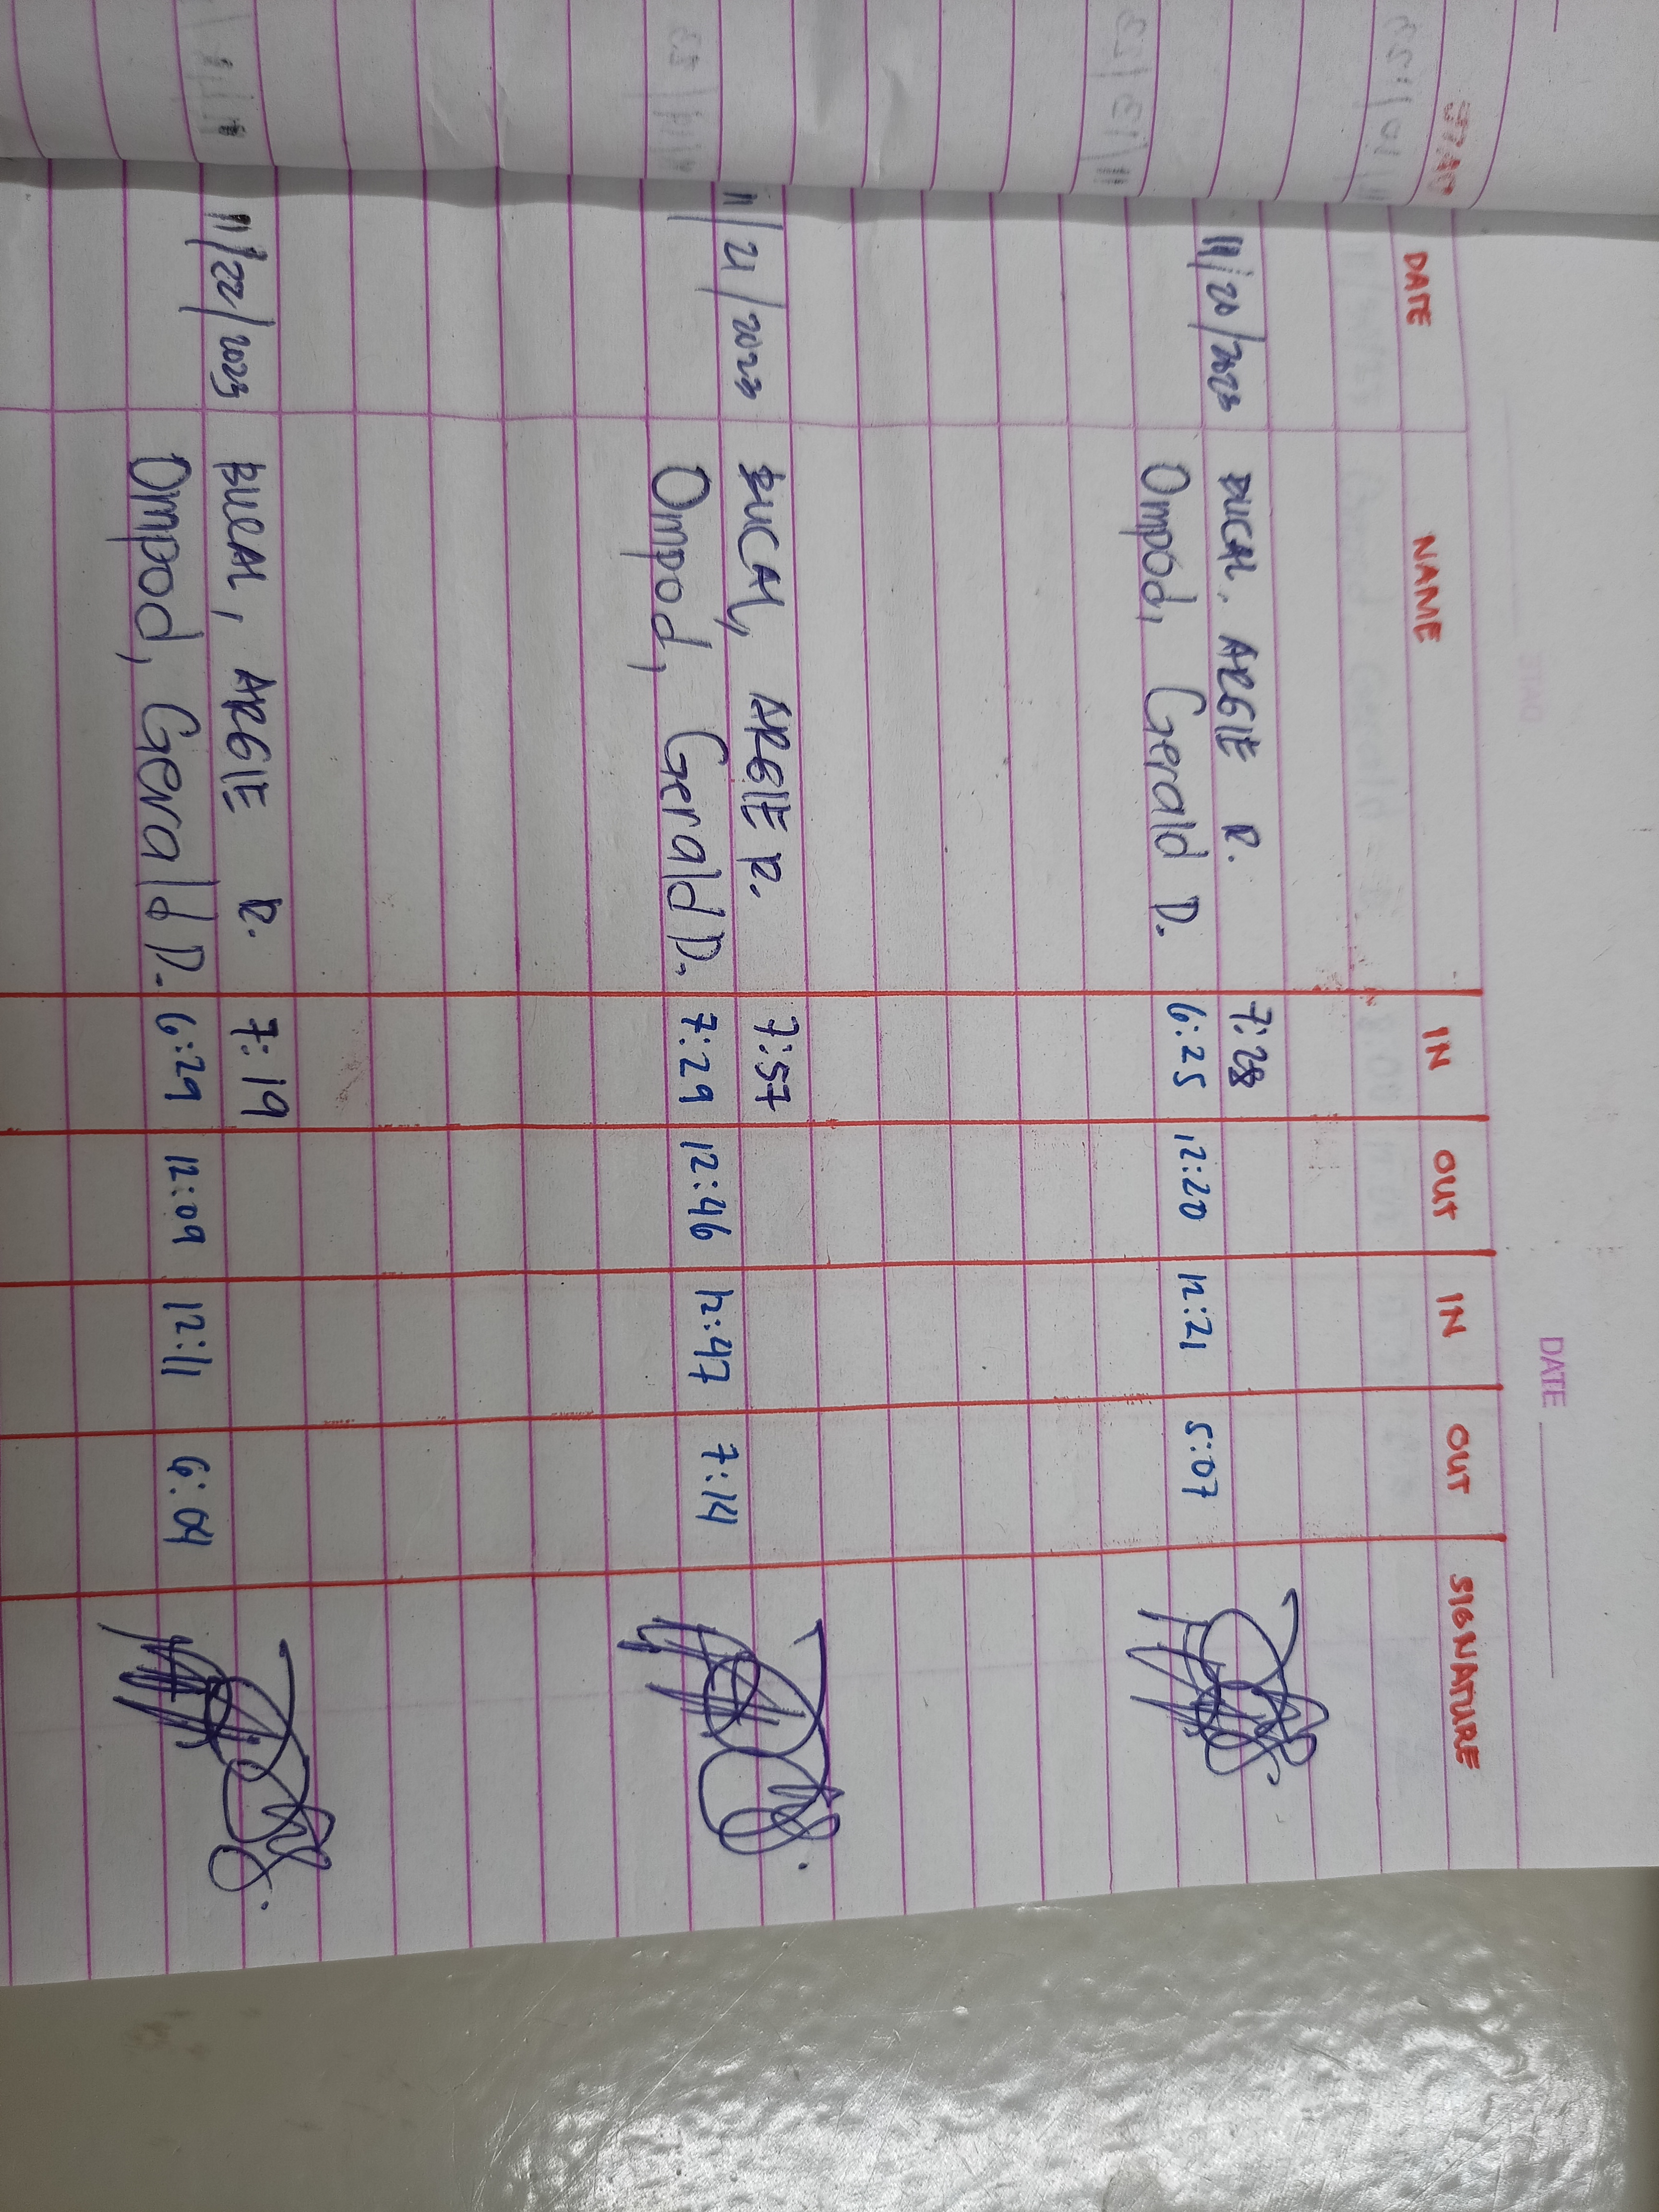 DATE
DATE NAME IN OUT IN OUT SIGNATURE
11/20/2023 BUCAL, ARGIE R. 7:28
Ompod, Gerald D. 6:25 12:20 12:21 5:07
11/21/2023 BUCAL, ARGIE R. 7:57
Ompod, Gerald D. 7:29 12:46 12:47 7:14
11/22/2023 BUCAL, ARGIE R. 7:19
Ompod, Gerald D. 6:29 12:09 12:11 6:04